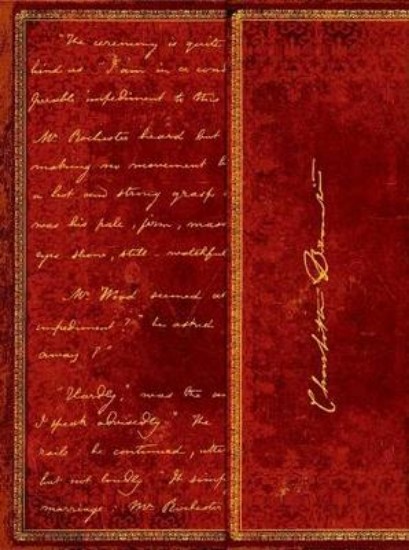 "The ceremony is quite
hind us "I am in a cond
perable impediment to this
Mr. Rochester heard but
making no movement b
a hot and strong grasp
was his pale, firm, mass
eyes shone, still - watchful
Mr. Wood seemed at
impediment?" he asked
away?"
"Hardly," was the an
I speak advisedly." The
rails he continued, utte
but not loudly "It simp
marriage: Mr Rochester
Charlotte Brontë